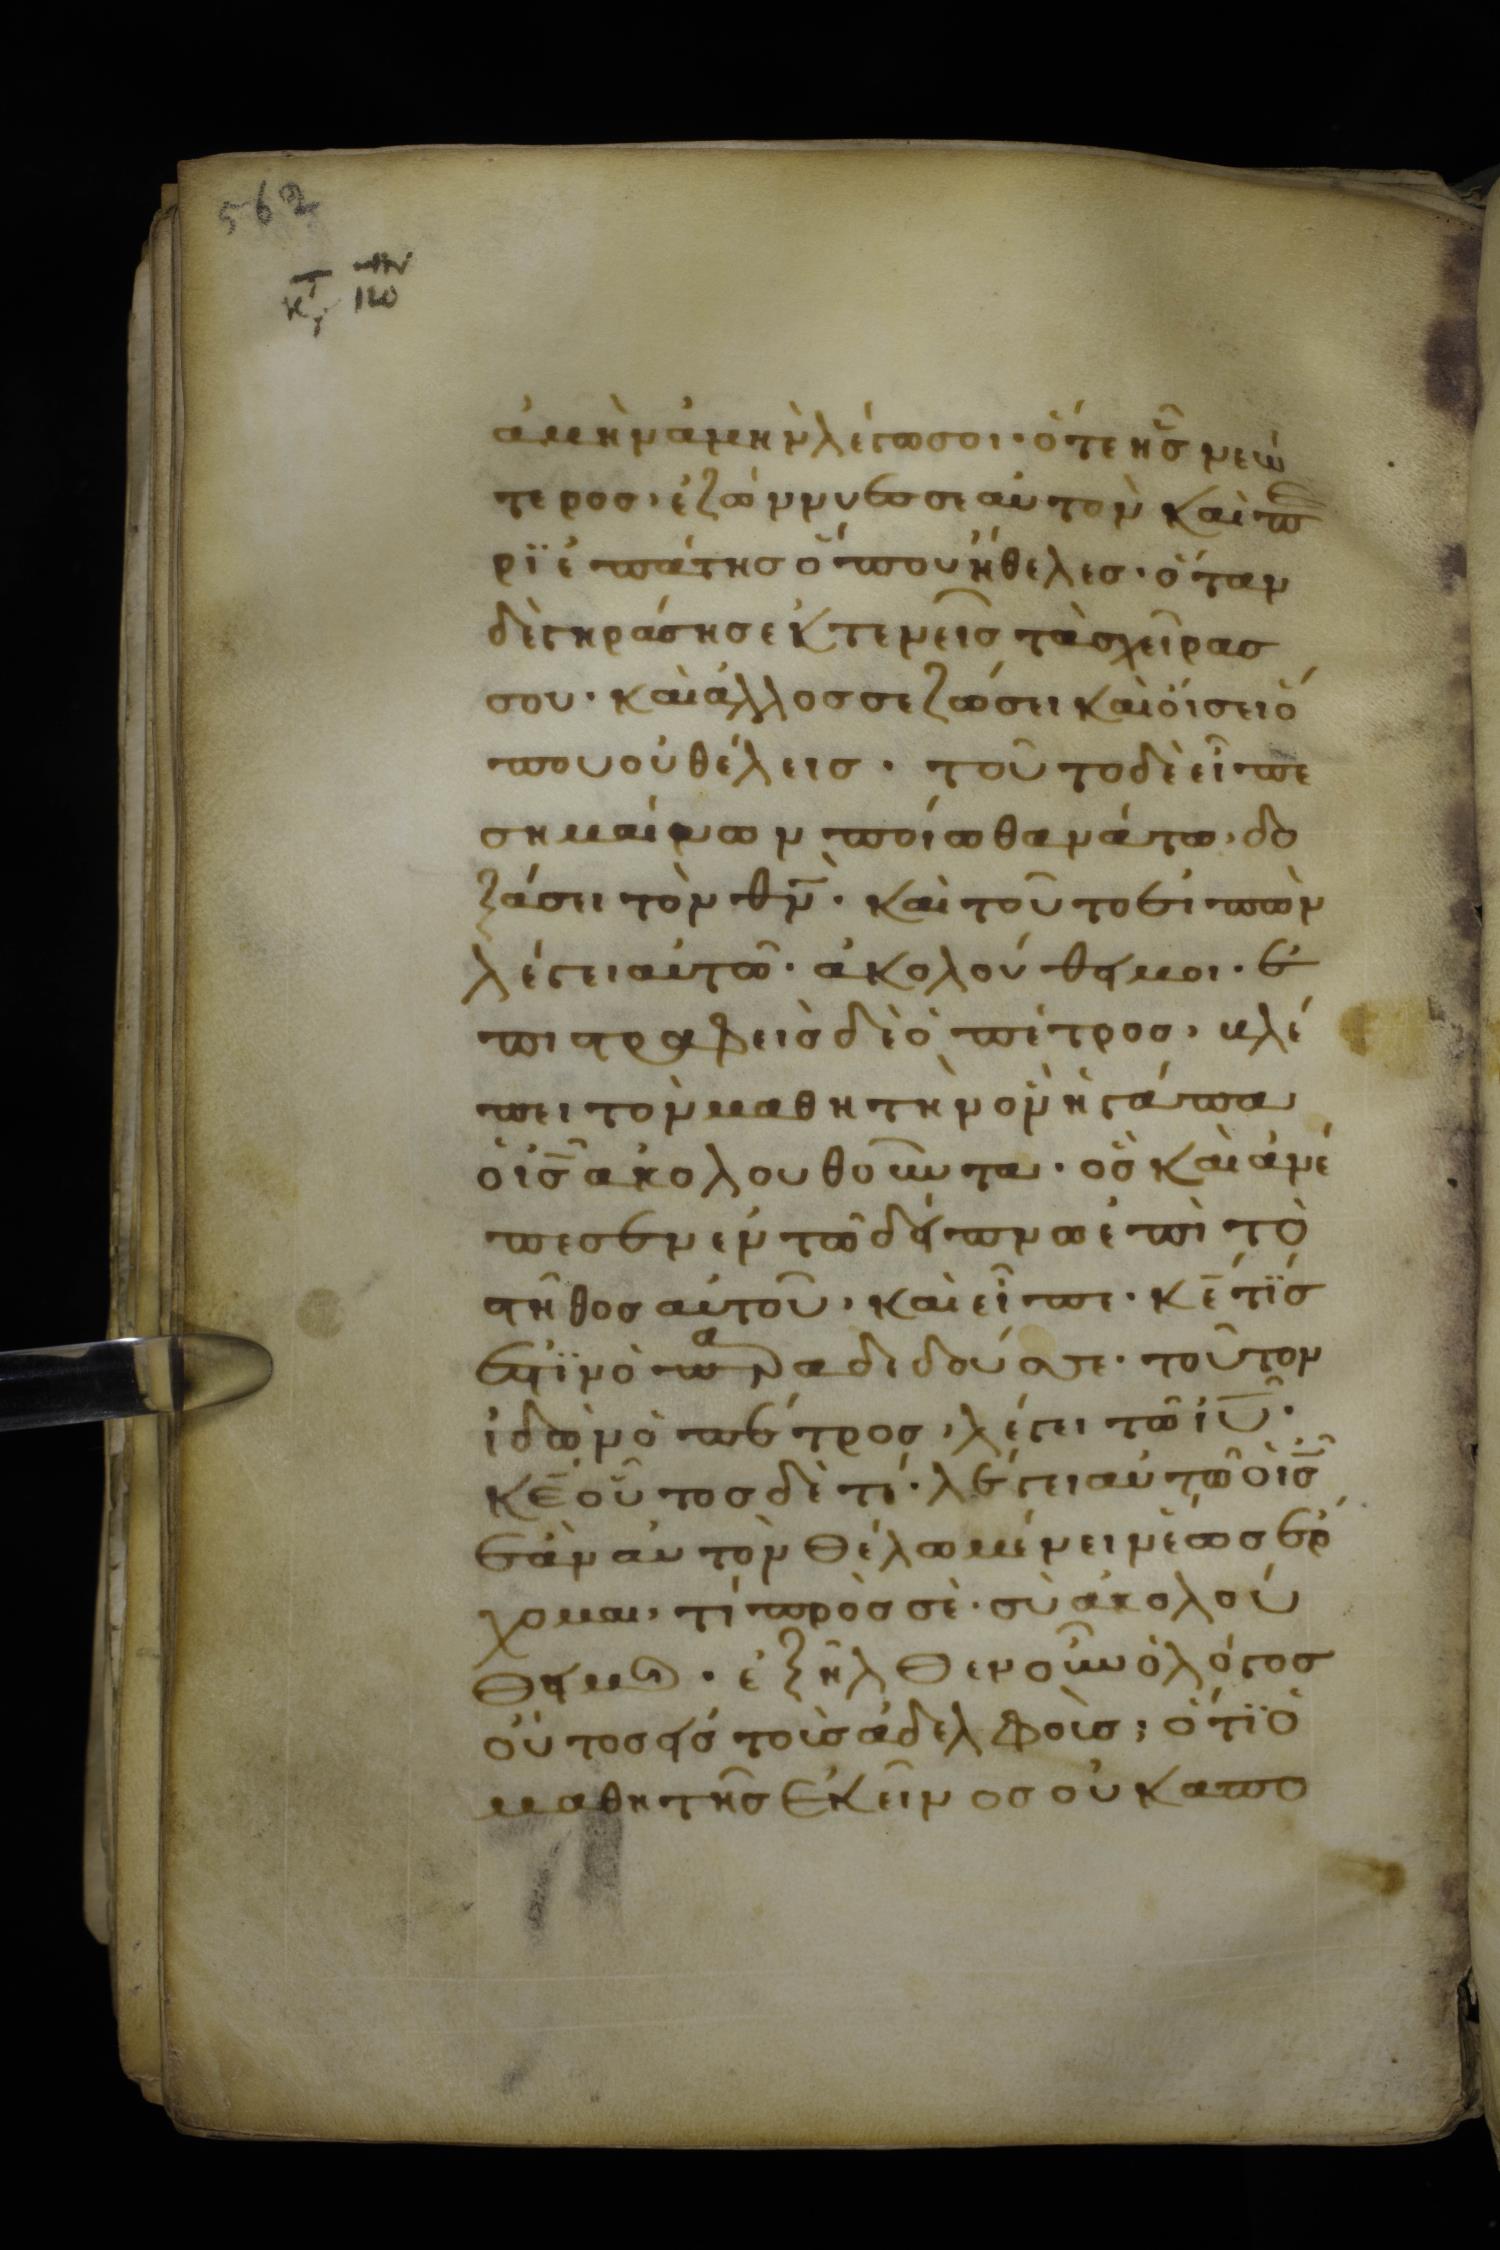 562
ἀμὴν ἀμὴν λέγω σοι· ὅτε ἦς νεώ
τερος, ἐζώννυες σεαυτὸν καὶ πε
ρϊεπάτης ὅπου ἤθελες· ὅταν
δὲ γηράσης ἐκτενεῖς τὰς χεῖρας
σου· καὶ ἄλλος σε ζώσει καὶ ὄισει ὅ
που οὐ θέλεις· τοῦτο δὲ εἶπε
σημαίνων ποίω θανάτω, δο
ξάσει τὸν θν̄· καὶ τοῦτο εἰπὼν
λέγει αὐτῶ· ἀκολούθει μοι· ἐ
πιστραφεὶς δὲ ὁ πέτρος, βλέ
πει τὸν μαθητὴν ὃν ἠγάπα
ὁ ις̄ ἀκολουθοῦντα· ὃς καὶ ἀνέ
πεσεν ἐν τῶ δείπνω ἐπὶ τὸ
στῆθος αὐτοῦ, καὶ εἶπε· κε̄ τίς
ἐστϊν ὁ παραδιδούς σε· τοῦτον
ἰδὼν ὁ πέτρος, λέγει τῶ ιῡ·
κε̄ οὗτος δὲ τί· λέγει αὐτῶ ὁ ις̄
ἐὰν αὐτὸν θέλω μένειν ἕως ἔρ
χομαι, τί πρὸς σὲ· σὺ ἀκολού
θει μοι· ἐξῆλθεν οὖν ὁ λόγος
οὗτος εἰς τοὺς ἀδελφοὺς; ὅτϊ ὁ
μαθητῆς ἐκεῖνος οὐκ απο